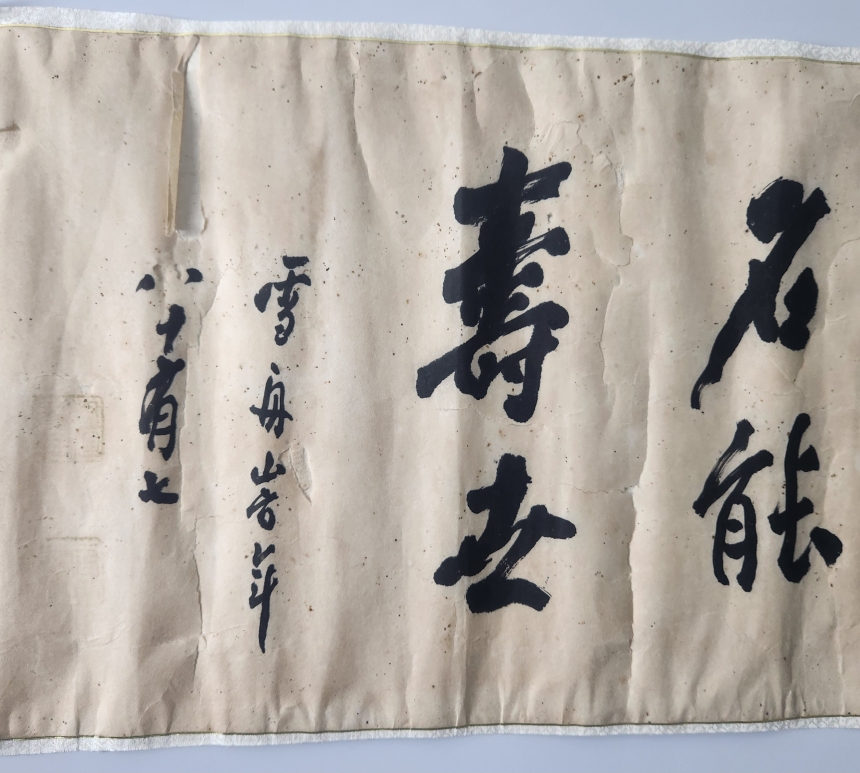 名能
壽世
雪舟峕年
八十有七